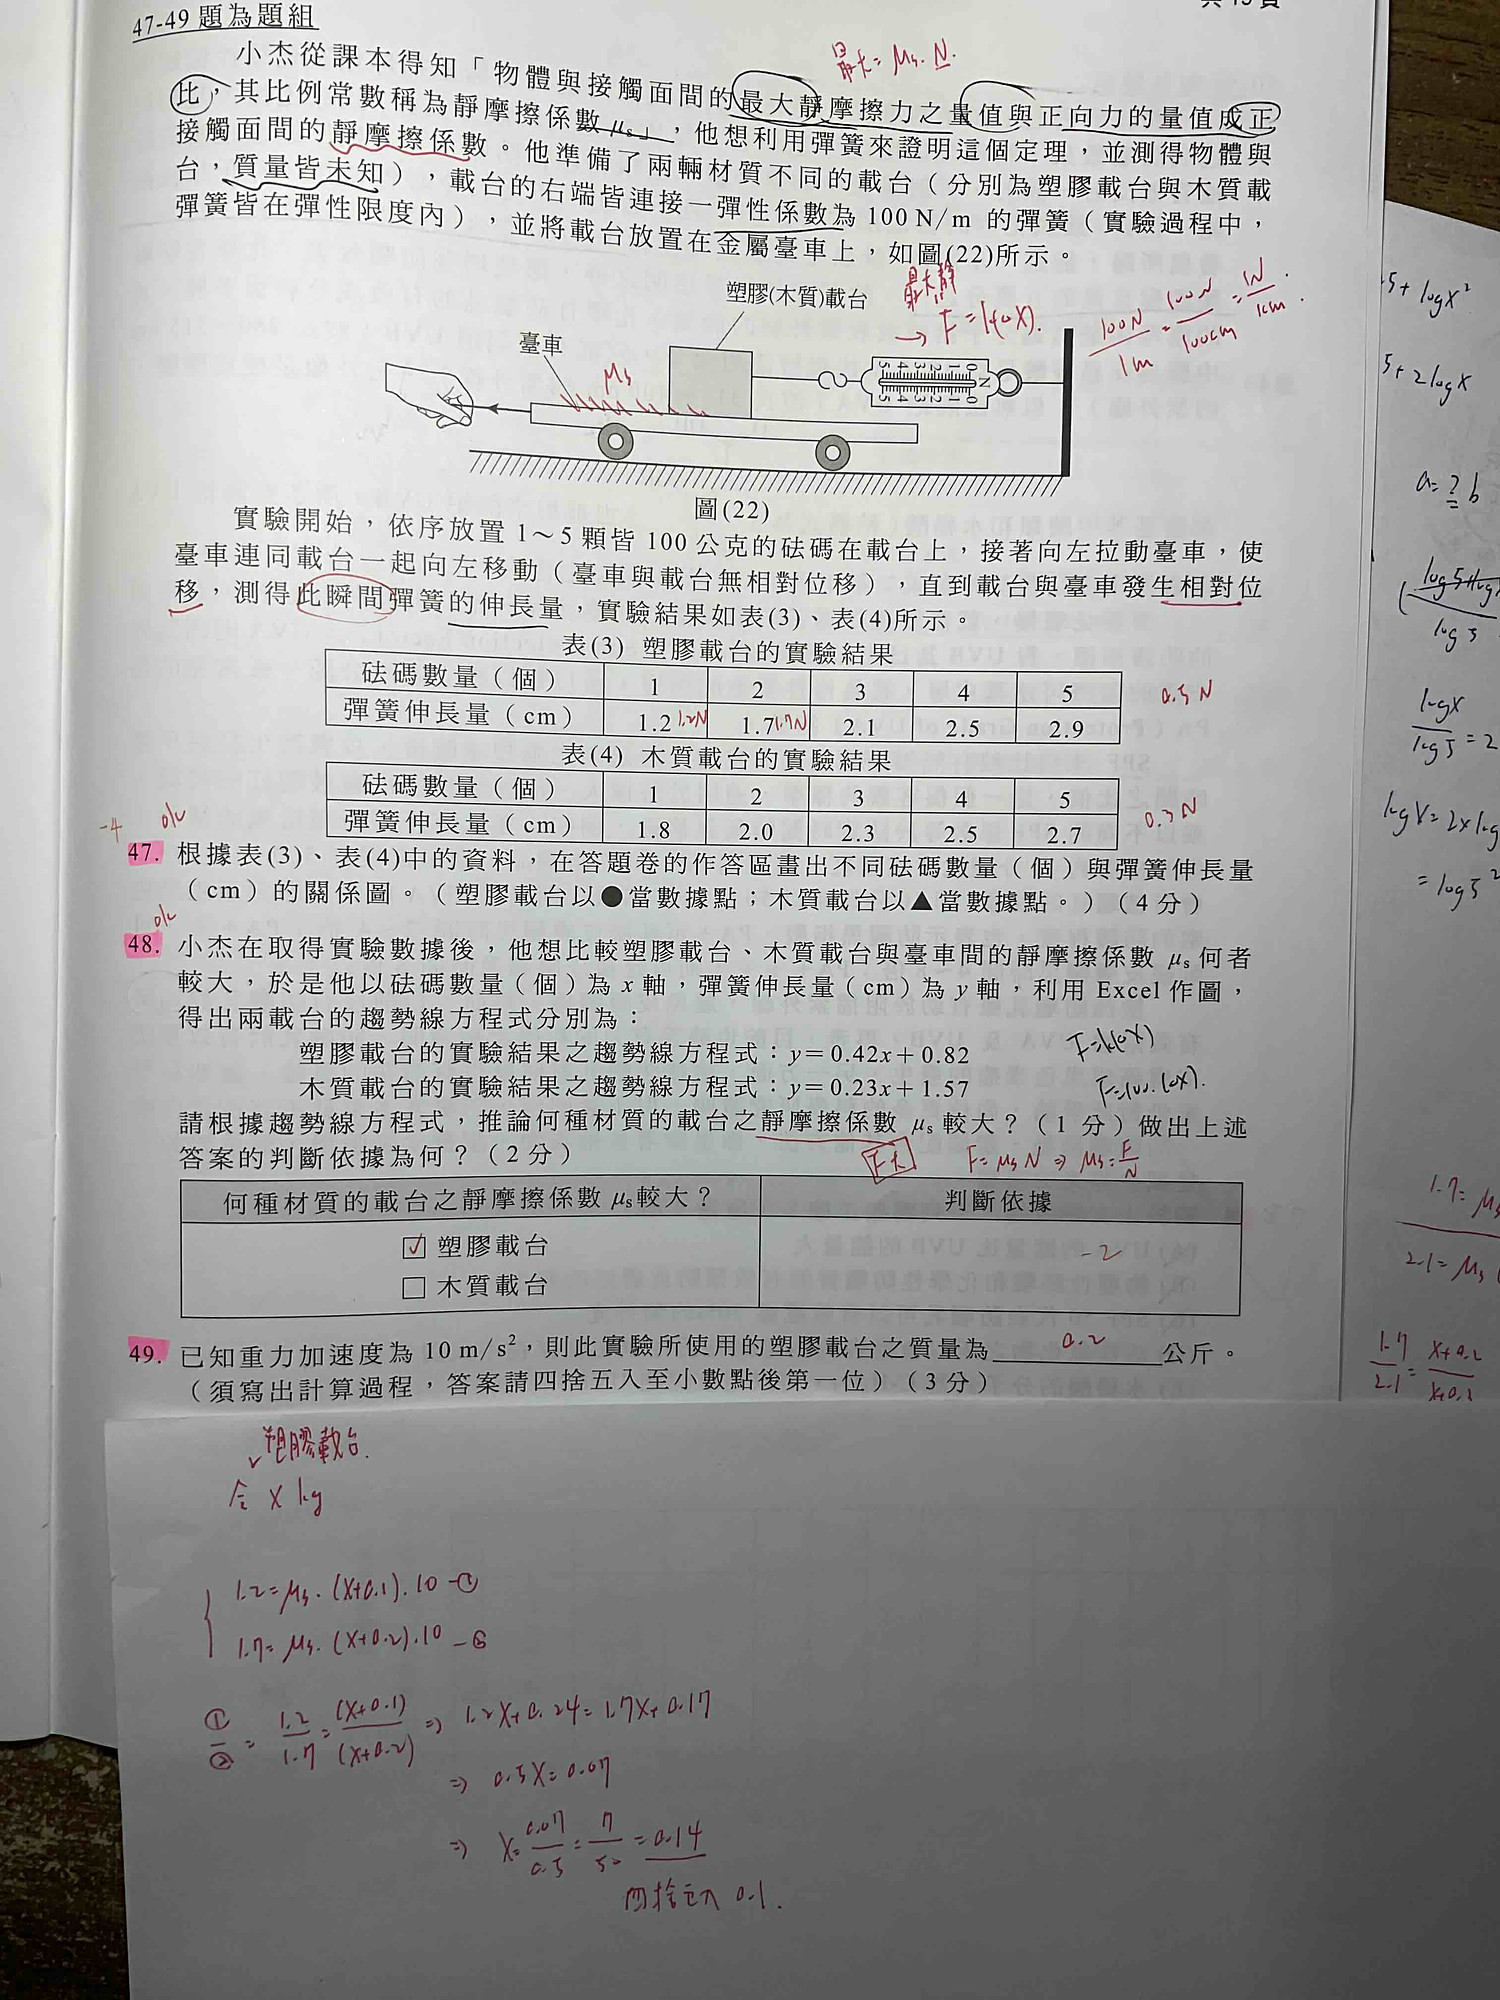 47-49 題為題組
小杰從課本得知「物體與接觸面間的最大靜摩擦力之量值與正向力的量值成正
比，其比例常數稱為靜摩擦係數 μs」，他想利用彈簧來證明這個定理，並測得物體與
接觸面間的靜摩擦係數。他準備了兩輛材質不同的載台（分別為塑膠載台與木質載
台，質量皆未知），載台的右端皆連接一彈性係數為 100 N/m 的彈簧（實驗過程中，
彈簧皆在彈性限度內），並將載台放置在金屬臺車上，如圖(22)所示。
最大= μs．N.
最大靜
→ F=k(△X).
100N/1m = 100N/100cm = 1N/1cm .
塑膠(木質)載台
臺車
μs
0 1 2 3 4 5
N
0 1 2 3 4 5
圖(22)
實驗開始，依序放置 1～5 顆皆 100 公克的砝碼在載台上，接著向左拉動臺車，使
臺車連同載台一起向左移動（臺車與載台無相對位移），直到載台與臺車發生相對位
移，測得此瞬間彈簧的伸長量，實驗結果如表(3)、表(4)所示。
表(3) 塑膠載台的實驗結果
砝碼數量（個） 1 2 3 4 5
彈簧伸長量（cm） 1.2 1.2N 1.7 1.7N 2.1 2.5 2.9
0.5 N
表(4) 木質載台的實驗結果
砝碼數量（個） 1 2 3 4 5
彈簧伸長量（cm） 1.8 2.0 2.3 2.5 2.7
0.3 N
-4 ok
47. 根據表(3)、表(4)中的資料，在答題卷的作答區畫出不同砝碼數量（個）與彈簧伸長量
（cm）的關係圖。（塑膠載台以●當數據點；木質載台以▲當數據點。）（4 分）
ok
48. 小杰在取得實驗數據後，他想比較塑膠載台、木質載台與臺車間的靜摩擦係數 μs 何者
較大，於是他以砝碼數量（個）為 x 軸，彈簧伸長量（cm）為 y 軸，利用 Excel 作圖，
得出兩載台的趨勢線方程式分別為：
塑膠載台的實驗結果之趨勢線方程式：y＝0.42x＋0.82
木質載台的實驗結果之趨勢線方程式：y＝0.23x＋1.57
F=k(△X)
F=100．(△X).
請根據趨勢線方程式，推論何種材質的載台之靜摩擦係數 μs 較大？（1 分）做出上述
答案的判斷依據為何？（2 分）
F大
F= μs N ⇒ μs = F/N
何種材質的載台之靜摩擦係數 μs 較大？ 判斷依據
☑ 塑膠載台
□ 木質載台
-2
49. 已知重力加速度為 10 m/s²，則此實驗所使用的塑膠載台之質量為 0.2 公斤。
（須寫出計算過程，答案請四捨五入至小數點後第一位）（3 分）
塑膠載台.
令 X kg
1.2= μs．(X+0.1)．10 -①
1.7= μs．(X+0.2)．10 -②
①/② = 1.2/1.7 = (X+0.1)/(X+0.2) ⇒ 1.2X+0.24=1.7X+0.17
⇒ 0.5X=0.07
⇒ X= 0.07/0.5 = 7/50 = 0.14
四捨五入 0.1.
5+ logX²
5+ 2logX
a= ? b
log 5
logX/log5 = 2
= log5²
1.7= μs
2.1= μs
1.7/2.1 = X+0.2